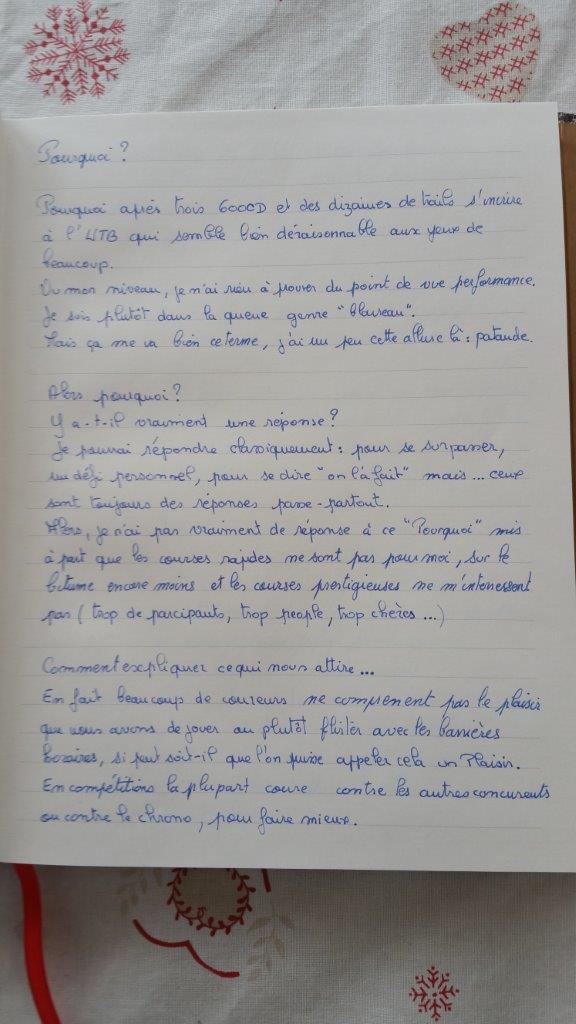 Pourquoi ?
Pourquoi après trois 6000D et des dizaines de trails s'incrire
à l'UTB qui semble bien déraisonnable aux yeux de
beaucoup.
Vu mon niveau, je n'ai rien à prouver du point de vue performance.
Je suis plutôt dans la queue genre "blaireau".
Mais ça me va bien ce terme, j'ai un peu cette allure là : pataude.
Alors pourquoi ?
Y a-t-il vraiment une réponse ?
Je pourrai répondre classiquement : pour se surpasser,
un défi personnel, pour se dire "on l'à fait" mais ... ceux
sont toujours des réponses passe-partout.
Alors, je n'ai pas vraiment de réponse à ce "Pourquoi" mis
à part que les courses rapides ne sont pas pour moi, sur le
bitume encore moins et les courses prestigieuses ne m'interressent
pas ( trop de parcipants, trop people, trop chères ...)
Comment expliquer ce qui nous attire ...
En fait beaucoup de coureurs ne comprenent pas le plaisir
que nous avons de jouer ou plutôt flirter avec les barrières
horaires, si peut soit-il que l'on puisse appeler cela un Plaisir.
En compétitions la plupart coure contre les autres concurents
ou contre le chrono, pour faire mieux.